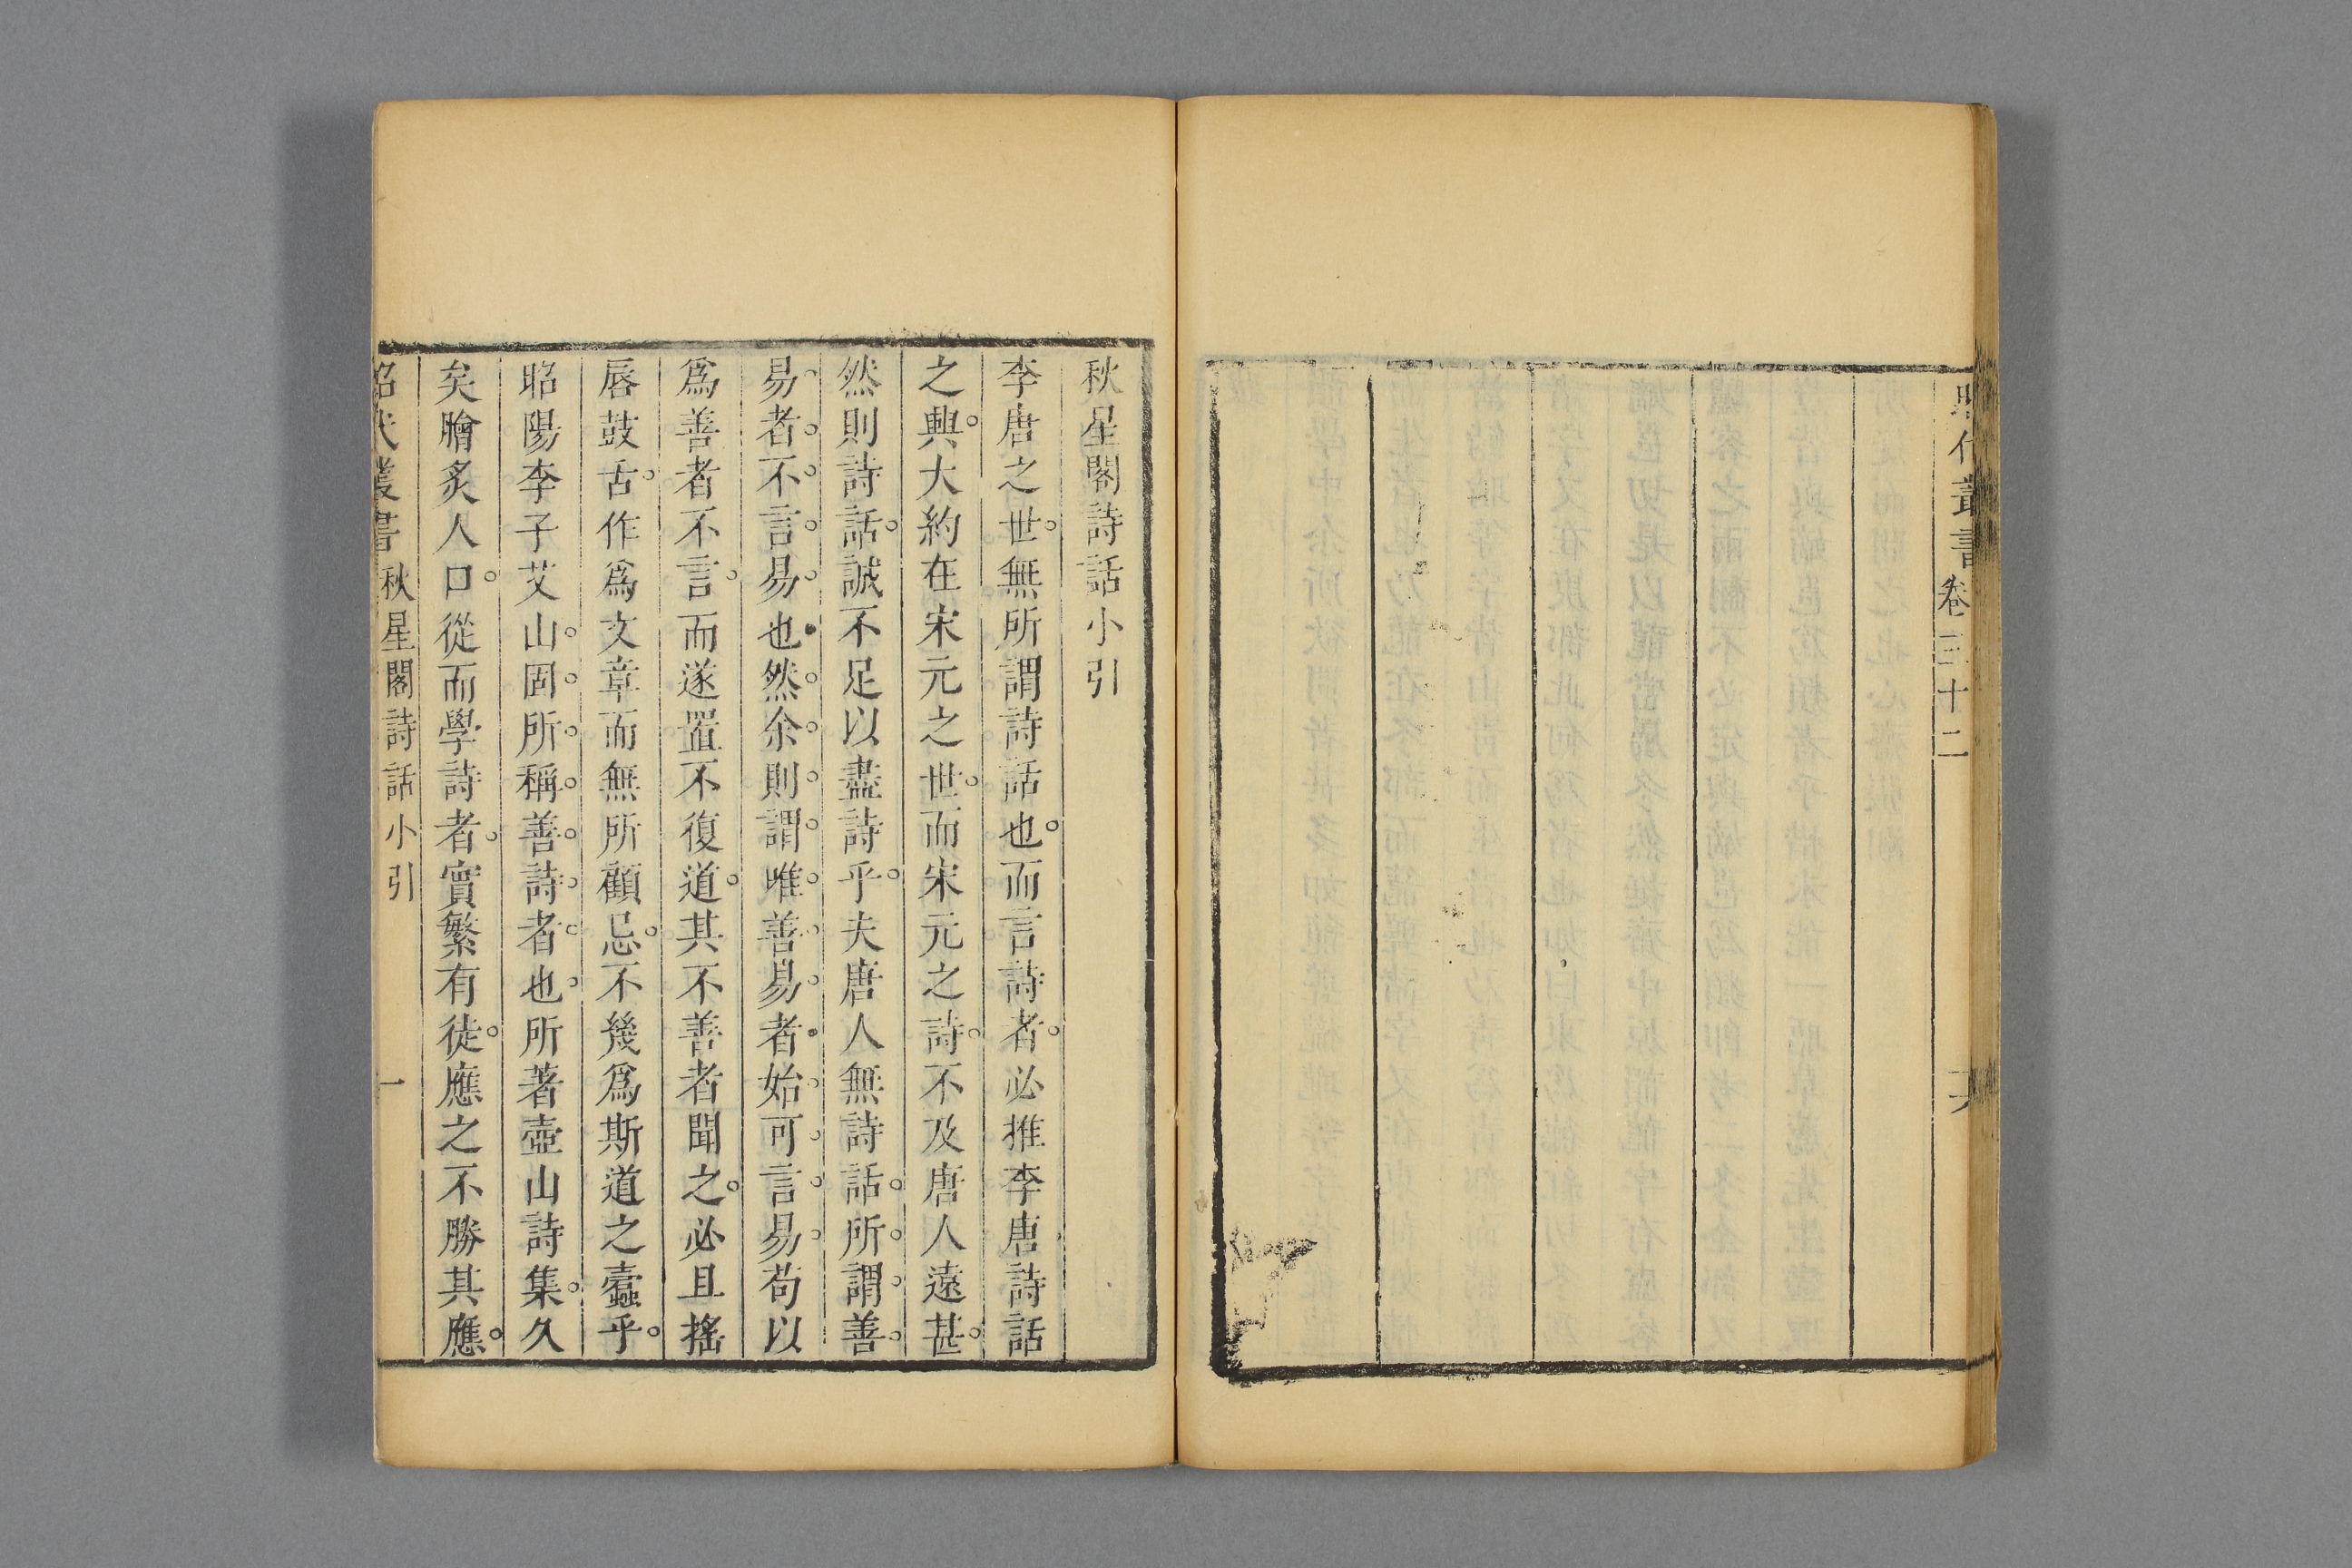 昭代叢書 卷三十二 六
秋星閣詩話小引
李唐之世。無所謂詩話也。而言詩者。必推李唐詩話
之興。大約在宋元之世。而宋元之詩。不及唐人遠甚。
然則詩話。誠不足以盡詩乎。夫唐人無詩話。所。謂。善。
易。者。不。言。易。也。然。余。則。謂。唯。善。易。者。始。可。言。易。苟以
爲善者不言。而遂置不復道。其不善者聞之。必且搖
唇鼓舌。作爲文章而無所顧忌。不幾爲斯道之蠹乎。
昭陽李子艾山。固。所。稱。善。詩。者。也。所著壺山詩集。久
矣膾炙人口。從而學詩者。實繁有徒。應之不勝其應。
昭代叢書 秋星閣詩話小引 一